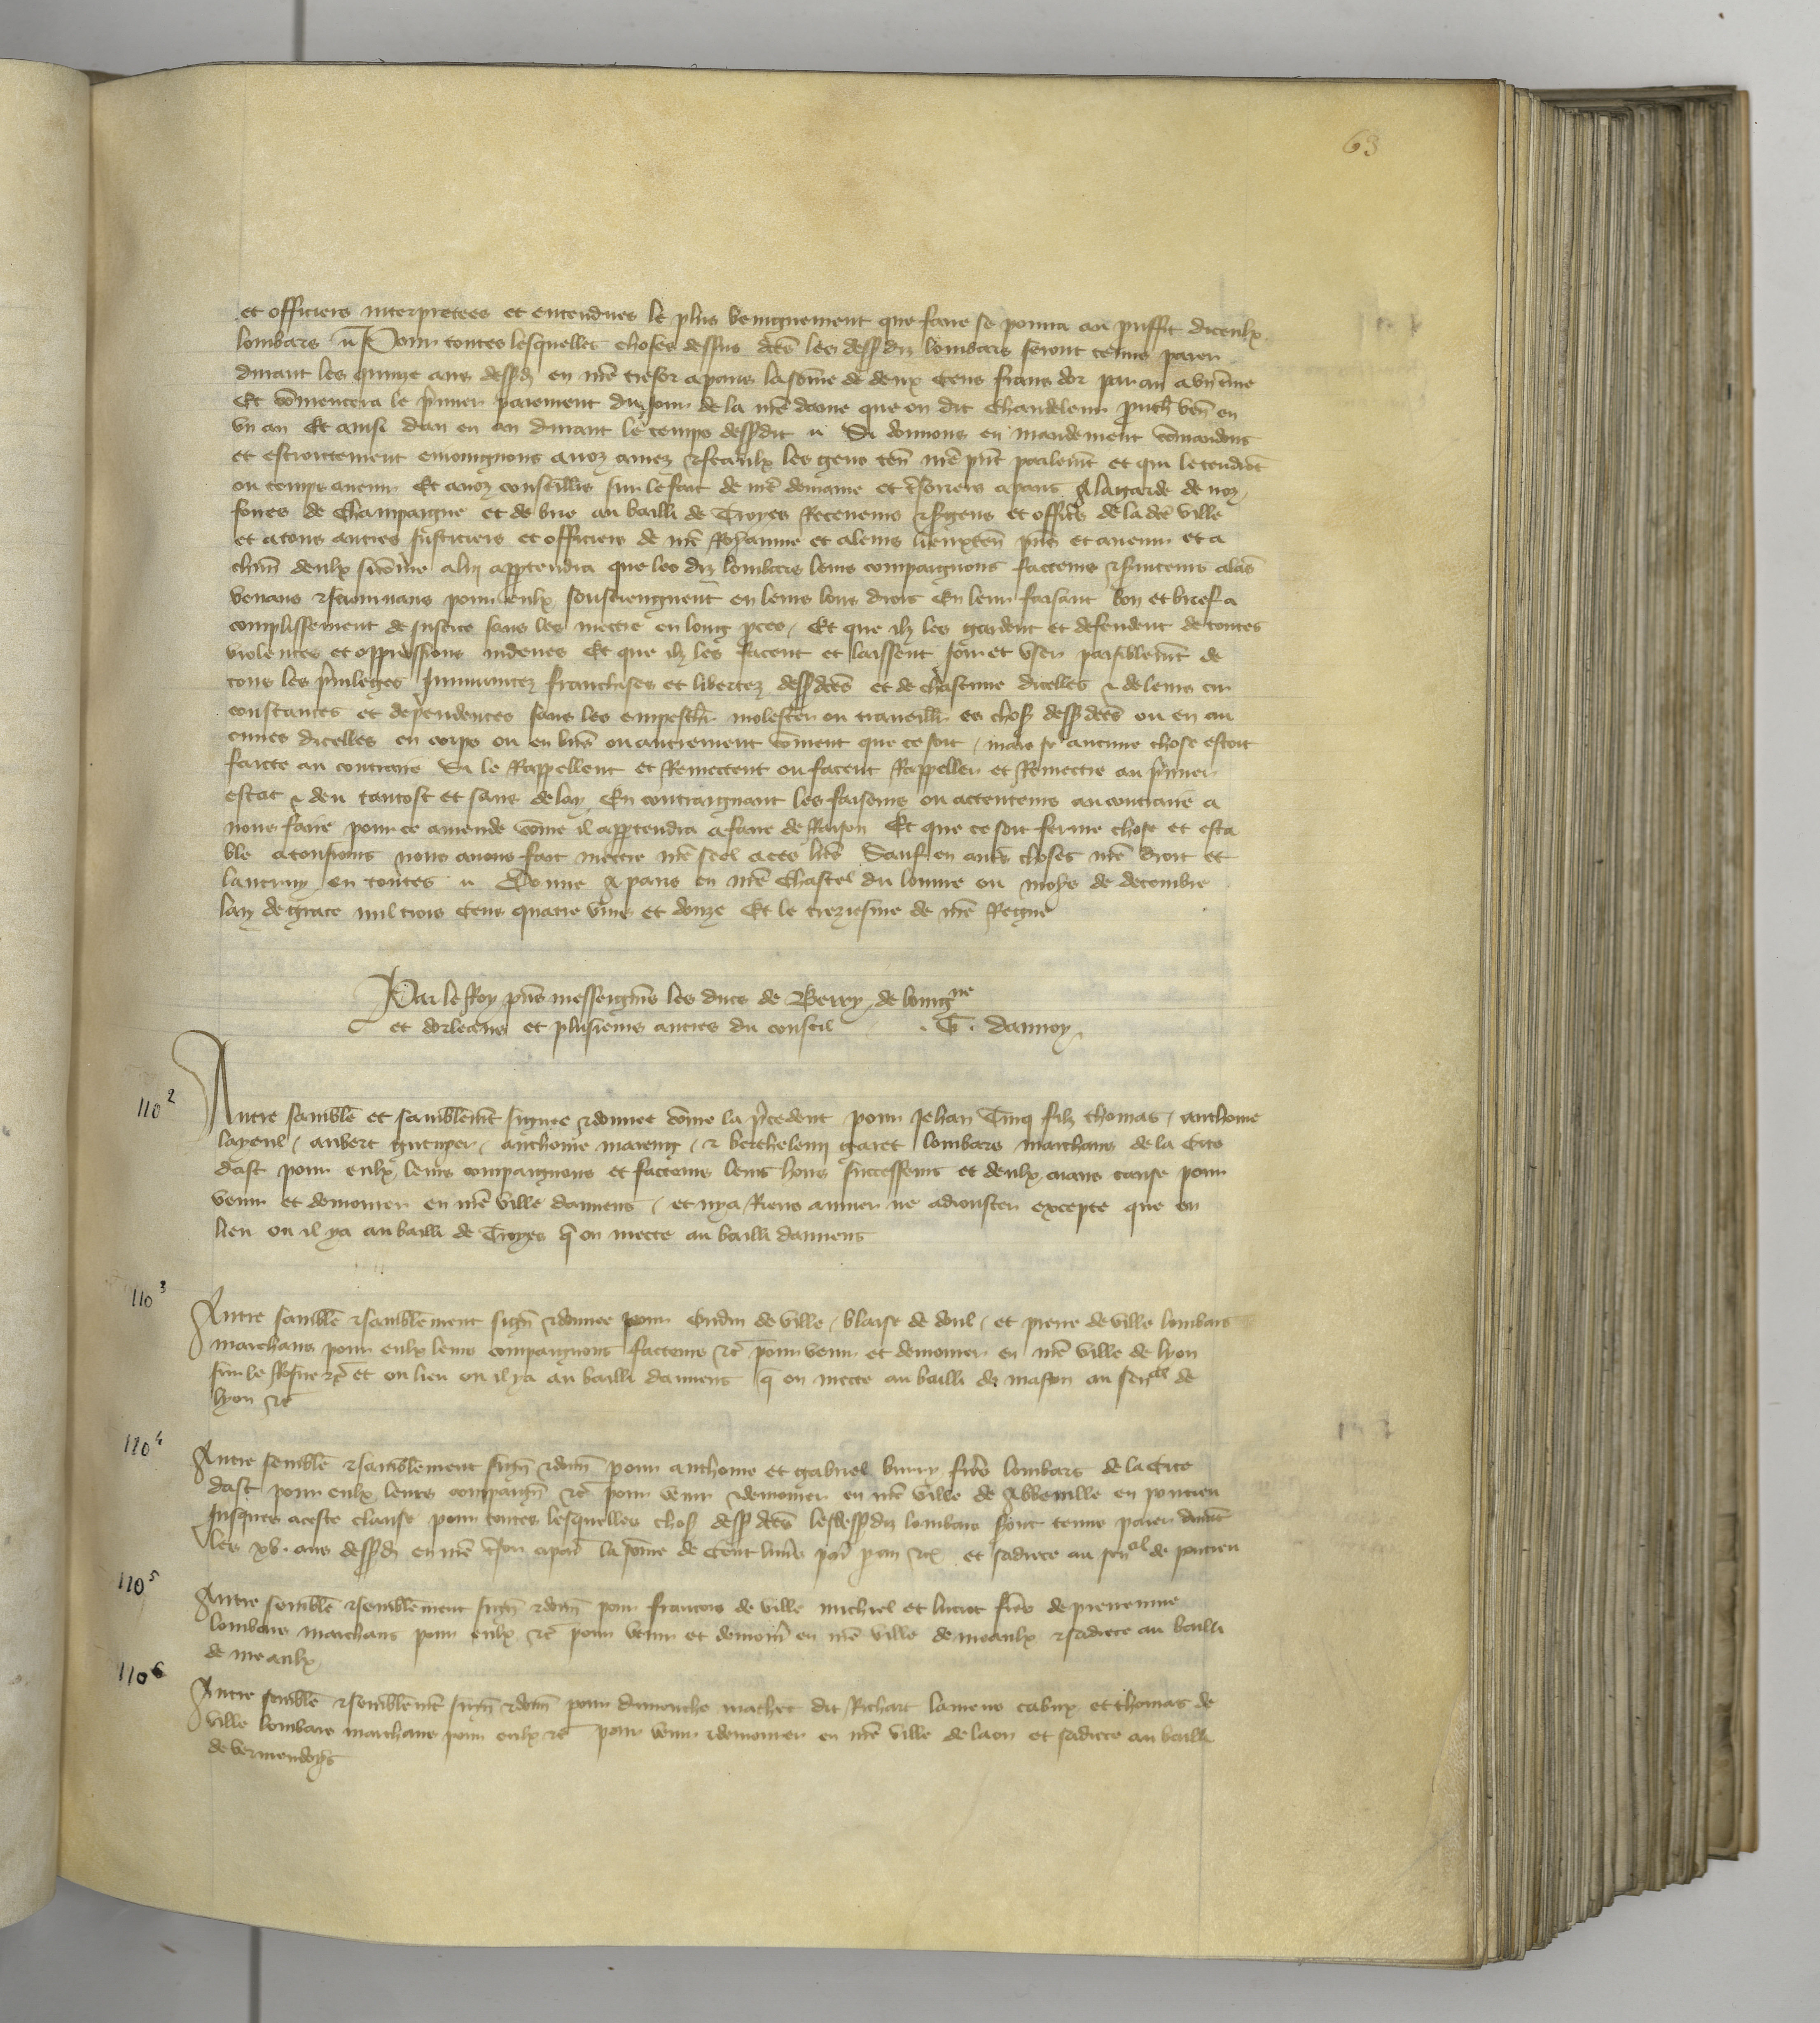 63
et officiers interpretees et entendues le plus benignement que faire se pourra au puffit diceulx
lombars Pour toutes lesquelles choses dessus dcēs les dessdiz lombars seront tenus paier
durant les quinze ans dessd en nrē tresor a paris la sōme de deux cens frans dor par an a un tme
Et cōmencera le pmier paiement du jour de la nrē dame que on dit Chandeleur venē en
un an Et ainsi dan en an durant le temps dessdit Si donnons en mandement cōmandons
et estroictement enioingnons a noz amez & feaulx les gens tenē nrē pnt parlemēt et qui le tendrōt
ou temps avenir Et a noz conseilliers sur le fait de nrē demaine et tsoriers a paris A la garde de noz
foires de Champaigne et de brie au bailli de Troyes Receveurs & sgens et offics de la dcē ville
et a tous autres Justiciers et officiers de nrē Royaume et a leurs lieuxtenē pns et avenir et a
chūn deulx sicōme a luy apptendra que les diz lombars leurs compaignons facteurs & serviteurs alās
venans & seiournans pour eulx soustiengnent en leurs bons drois En leur faisant bon et brief a
complissement de Justice sans les mettre en long pces Et que ilz les gardent et defendent de toutes
violences et oppressions indeues Et que ilz les facent et laissent joir et user paisiblemēt de
tous les privileges Immunitez franchises et libertez dessdcēs et de chascune dicelles & de leurs cir
constances et dependences sans les empeschr molester ou traveillr es chosz dessdcēs ou en au
cunes dicelles en corps ou en biēs ou autrement cōment que ce soit / mais se aucune chose estoit
faicte au contraire Si le Rappellent et Remettent ou facent Rappeller et Remectre au pmier
estat & deu tantost et sans delay En contraignant les faiseurs ou attenteurs au contraire a
nous faire pour ce amende cōme il apptendra a faire de Raison Et que ce soit ferme chose et esta
ble a tousiours nous avons fait mettre nrē scel a ces lrēs Sauf en autēs choses nrē droit et
lautruy en toutes Donne A paris en nrē Chastel du louvre ou moys de decembre
lan de grace mil trois cens quatre vins et douze Et le treziesme de nrē Regne
Par le Roy pns messeignrs les ducs de Berry de bourgne
et dorleans et plusieurs autres du conseil . G . daunoy
110 2
Autre samblē et samblemēt signee & donnee cōme la pcedent pour Jehan Turq filz thomas / anthoine
layeul / aubert gutuyer / anthoine mareng / & berthelemy garet lombars marchans de la Cite
dast pour eulx leurs compaignons et facteurs leurs hoirs successeurs et deulx aians cause pour
venir et demourer en nrē ville damiens / et nya Riens a muer ne adiouster excepte que en
lieu ou il ya au bailli de Troyes q̄ on mecte au bailli damiens
110 3
Autre samblē & samblement signē & donnee pour Oudin de ville / blaise de doul / et pierre de ville lombars
marchans pour eulx leurs compaignons facteurs &c pour venir et demourer en nrē ville de lyon
sur le Rosne &c et ou lieu ou il ya au bailli damiens q̄ on mecte au bailli de mascon au senal de
lyon &c
110 4
Autre semblē & samblement signē & donē pour anthoine et gabriel bury freres lombars de la Cite
dast pour eulx leurs compaignē &c pour venir & demourer en nrē ville de Abbeville en pontieu
Jusques a ceste clause pour toutes lesquelles chosz dessdcēs lesdessdiz lombars sont tenus paier durāt
les xv. ans dessd en nrē tsor a par la sōme de Cent livrs par p an &c et sadrece au senal de pontieu
110 5
Autre semblē & semblement signē & donē pour francois de ville michiel et luciot frēs de prevenne
lombars marchans pour eulx &c pour venir et demourr en nrē ville de meaulx & sadrece au bailli
de meaulx
110 6
Autre semblē & semblemēt signē & donē pour dimenche machet dit Richart lameur cabux et thomas de
ville lombars marchans pour eulx &c pour venir & demourer en nrē ville de laon et sadrece au bailli
de vermendoys